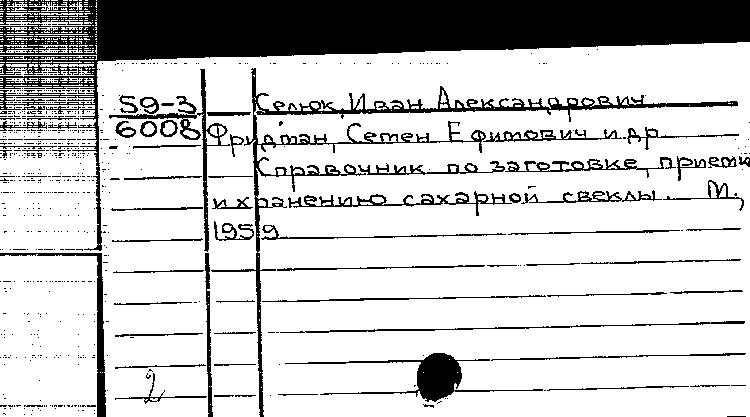 59-3
6008
Селюк, Иван Александрович
Фридман, Семен Ефимович и др
Справочник по заготовке, приемке
и хранению сахарной свеклы. М.,
1959
2